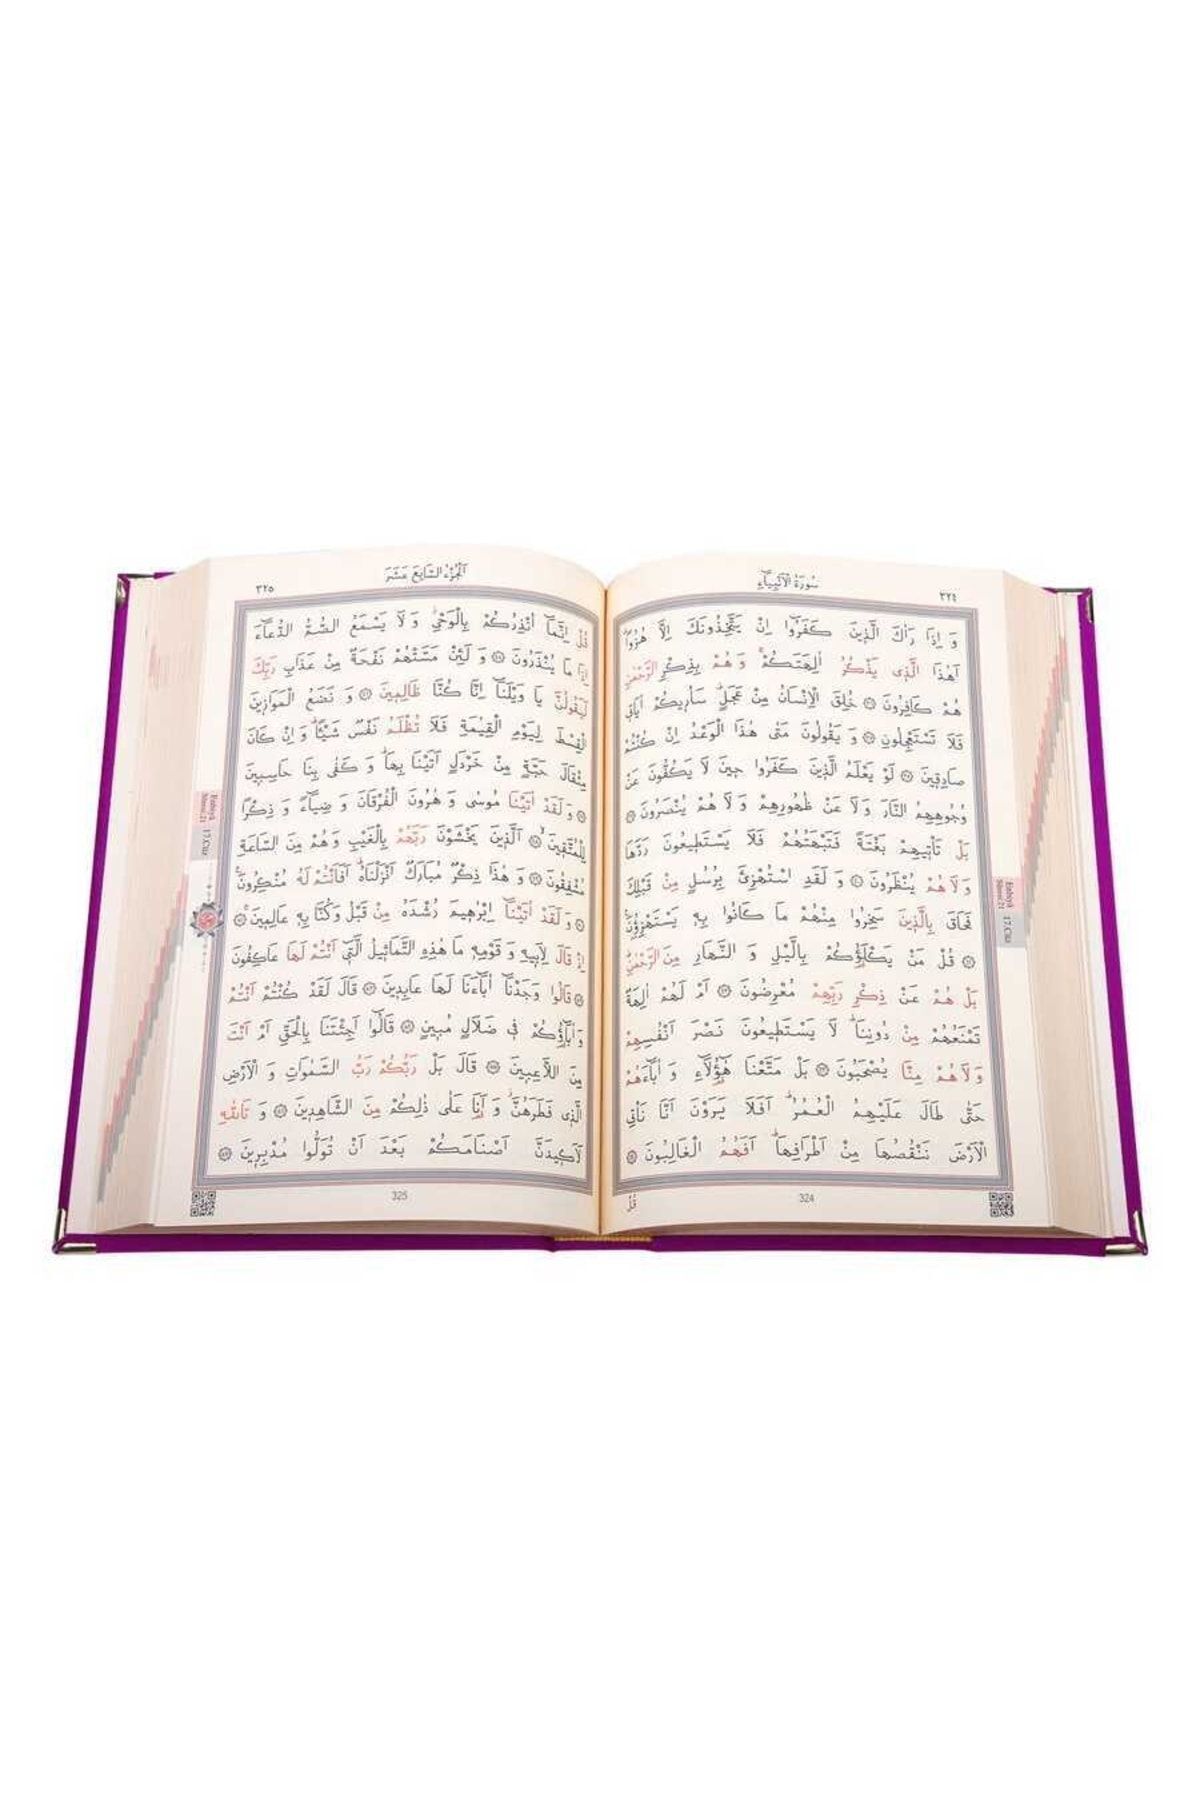 سُورَةُ الْاَنْبِيَاءِ
٣٢٤
وَ اِذَا رَاٰكَ الَّذٖينَ كَفَرُٓوا اِنْ يَتَّخِذُونَكَ اِلَّا هُزُوًاۜ
اَهٰذَا الَّذٖى يَذْكُرُ اٰلِهَتَكُمْۚ وَ هُمْ بِذِكْرِ الرَّحْمٰنِ
هُمْ كَافِرُونَ ﴿٣٦﴾ خُلِقَ الْاِنْسَانُ مِنْ عَجَلٍۜ سَاُرٖيكُمْ اٰيَاتٖى
فَلَا تَسْتَعْجِلُونِ ﴿٣٧﴾ وَ يَقُولُونَ مَتٰى هٰذَا الْوَعْدُ اِنْ كُنْتُمْ
صَادِقٖينَ ﴿٣٨﴾ لَوْ يَعْلَمُ الَّذٖينَ كَفَرُوا حٖينَ لَا يَكُفُّونَ عَنْ
وُجُوهِهِمُ النَّارَ وَ لَا عَنْ ظُهُورِهِمْ وَ لَا هُمْ يُنْصَرُونَ ﴿٣٩﴾
بَلْ تَأْتٖيهِمْ بَغْتَةً فَتَبْهَتُهُمْ فَلَا يَسْتَطٖيعُونَ رَدَّهَا
وَ لَا هُمْ يُنْظَرُونَ ﴿٤٠﴾ وَ لَقَدِ اسْتُهْزِئَ بِرُسُلٍ مِنْ قَبْلِكَ
فَحَاقَ بِالَّذٖينَ سَخِرُوا مِنْهُمْ مَا كَانُوا بِهٖ يَسْتَهْزِؤُ۫نَ
﴿٤١﴾ قُلْ مَنْ يَكْلَؤُ۬كُمْ بِالَّيْلِ وَ النَّهَارِ مِنَ الرَّحْمٰنِۜ
بَلْ هُمْ عَنْ ذِكْرِ رَبِّهِمْ مُعْرِضُونَ ﴿٤٢﴾ اَمْ لَهُمْ اٰلِهَةٌ
تَمْنَعُهُمْ مِنْ دُونِنَاۜ لَا يَسْتَطٖيعُونَ نَصْرَ اَنْفُسِهِمْ
وَ لَا هُمْ مِنَّا يُصْحَبُونَ ﴿٤٣﴾ بَلْ مَتَّعْنَا هٰٓؤُ۬لَٓاءِ وَ اٰبَٓاءَهُمْ
حَتّٰى طَالَ عَلَيْهِمُ الْعُمُرُۜ اَفَلَا يَرَوْنَ اَنَّا نَأْتِى
الْاَرْضَ نَنْقُصُهَا مِنْ اَطْرَافِهَاۜ اَفَهُمُ الْغَالِبُونَ ﴿٤٤﴾
324
قُلْ
Enbiyâ
Sûresi/21
17.Cüz
اَلْجُزْءُ السَّابِعَ عَشَرَ
٣٢٥
قُلْ اِنَّمَٓا اُنْذِرُكُمْ بِالْوَحْيِۘ وَ لَا يَسْمَعُ الصُّمُّ الدُّعَٓاءَ
اِذَا مَا يُنْذَرُونَ ﴿٤٥﴾ وَ لَئِنْ مَسَّتْهُمْ نَفْحَةٌ مِنْ عَذَابِ رَبِّكَ
لَيَقُولُنَّ يَا وَيْلَنَٓا اِنَّا كُنَّا ظَالِمٖينَ ﴿٤٦﴾ وَ نَضَعُ الْمَوَازٖينَ
الْقِسْطَ لِيَوْمِ الْقِيٰمَةِ فَلَا تُظْلَمُ نَفْسٌ شَيْـًٔاۜ وَ اِنْ كَانَ
مِثْقَالَ حَبَّةٍ مِنْ خَرْدَلٍ اَتَيْنَا بِهَاۜ وَ كَفٰى بِنَا حَاسِبٖينَ
﴿٤٧﴾ وَ لَقَدْ اٰتَيْنَا مُوسٰى وَ هٰرُونَ الْفُرْقَانَ وَ ضِيَٓاءً وَ ذِكْرًا
لِلْمُتَّقٖينَۙ ﴿٤٨﴾ اَلَّذٖينَ يَخْشَوْنَ رَبَّهُمْ بِالْغَيْبِ وَ هُمْ مِنَ السَّاعَةِ
مُشْفِقُونَ ﴿٤٩﴾ وَ هٰذَا ذِكْرٌ مُبَارَكٌ اَنْزَلْنَاهُۜ اَفَاَنْتُمْ لَهُ مُنْكِرُونَ۟
﴿٥٠﴾ وَ لَقَدْ اٰتَيْنَٓا اِبْرٰهٖيمَ رُشْدَهُ مِنْ قَبْلُ وَ كُنَّا بِهٖ عَالِمٖينَۚ ﴿٥١﴾
اِذْ قَالَ لِاَبٖيهِ وَ قَوْمِهٖ مَا هٰذِهِ التَّمَاثٖيلُ الَّتٖٓى اَنْتُمْ لَهَا عَاكِفُونَ
﴿٥٢﴾ قَالُوا وَجَدْنَٓا اٰبَٓاءَنَا لَهَا عَابِدٖينَ ﴿٥٣﴾ قَالَ لَقَدْ كُنْتُمْ اَنْتُمْ
وَ اٰبَٓاؤُ۬كُمْ فٖى ضَلَالٍ مُبٖينٍ ﴿٥٤﴾ قَالُٓوا اَجِئْتَنَا بِالْحَقِّ اَمْ اَنْتَ
مِنَ اللَّاعِبٖينَ ﴿٥٥﴾ قَالَ بَلْ رَبُّكُمْ رَبُّ السَّمٰوَاتِ وَ الْاَرْضِ
الَّذٖى فَطَرَهُنَّۘ وَ اَنَا۬ عَلٰى ذٰلِكُمْ مِنَ الشَّاهِدٖينَ ﴿٥٦﴾ وَ تَاللّٰهِ
لَاَكٖيدَنَّ اَصْنَامَكُمْ بَعْدَ اَنْ تُوَلُّوا مُدْبِرٖينَ ﴿٥٧﴾
325
Enbiyâ
Sûresi/21
17.Cüz